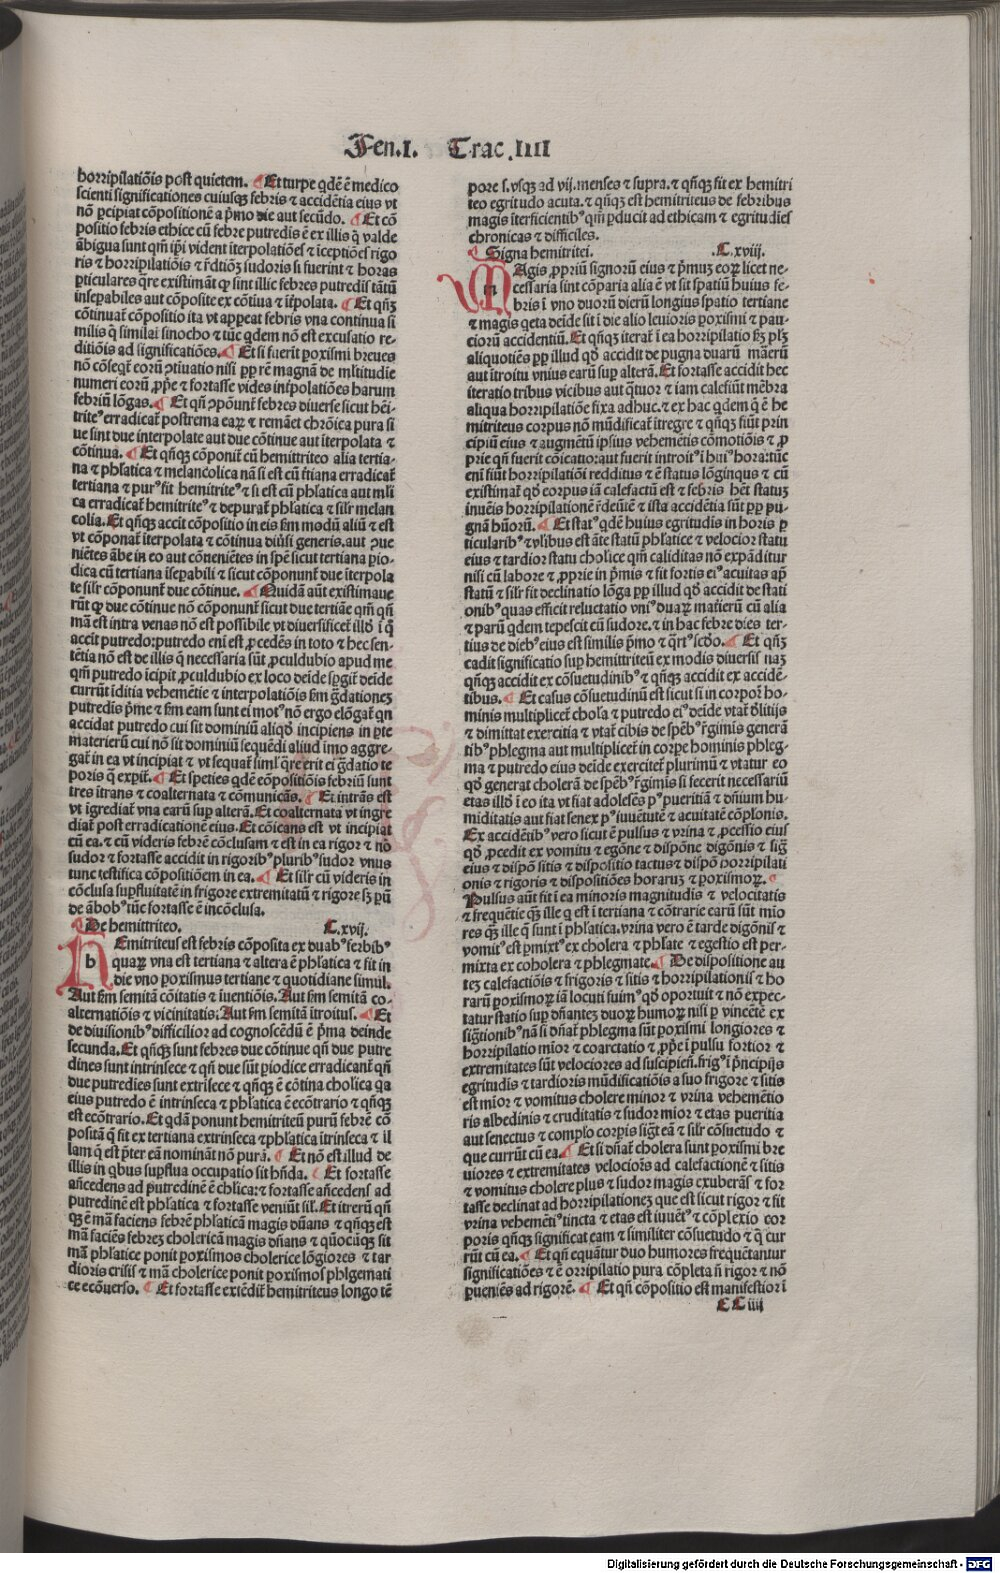 Fen.I. Trac.IIII
horripilatiōis post quietem. ¶ Et turpe qdē ē medico
scienti significationes cuiusqꝫ febris ⁊ accidētia eius vt
nō ꝑcipiat cōpositionē a pͥmo die aut secūdo. ¶ Et cō
positio febris ethice cū febre putredis ē ex illis q̄ valde
ābigua sunt qm̄ ipi vident īterpolatiōes ⁊ īceptiōes rigo
ris ⁊ horripilatiōis ⁊ sudoris si fuerint ⁊ horas
ꝑticulares q̄re existimāt ꝙ sint illic febres putredis tātū
inseꝑabiles aut cōposite ex cōtiua ⁊ īterpolata. ¶ Et qñqꝫ
cōtinuat̄ cōpositio ita vt appeat febris vna continua si
milis q̄ similat̄ sinocho ⁊ tūc qdem nō est excusatio re
ditiōis ad significatiōes. ¶ Et si fuerit ꝑoxismi breues
nō cōseq̄t̄ eorū ꝯtiuatio nisi ꝓp rē magnā de mltitudie
numeri eorū ꝓpe ⁊ fortasse vides int̄polatiōes harum
febriū lōgas. ¶ Et qñ ꝯpōunt̄ febres diuerse sicut hēi-
triteꝰ erradicat̄ postrema eaꝝ ⁊ remāet chrōica pura si
ue sint due interpolate aut due cōtinue aut īterpolata ⁊
cōtinua. ¶ Et qñqꝫ cōponit̄ cū hemittriteo alia tertia-
na ⁊ phlatica ⁊ melancolica nā si est cū tertiana erradicat̄
tertiana ⁊ purꝰ fit hemitriteꝰ ⁊ si est cū phlatica aut mli
ca erradicat̄ hemitriteꝰ ⁊ depurat̄ phlatica ⁊ silr melan
colia. Et qñqꝫ accit cōpositio in eis fm modū aliū ⁊ est
vt cōponat̄ īterpolata ⁊ cōtinua diu̇si generis. aut ꝯue
niētes ābe in eo aut cōtenientes in spē sicut tertiana ꝑio-
dica cū tertiana īseꝑabili ⁊ sicut cōponunt̄ due īterpola
te silr cōponunt̄ due cōtinue. ¶ Quidā aūt existimaue
rūt ꝙ due cōtinue nō cōponunt̄ sicut due tertiāe qm̄ qñ
mā est intra venas nō est possibile vt diuersificet̄ illd̄ ī q̄
accit putredo: putredo eni est ꝓcedēs in toto ⁊ hec sen-
tētia nō est de illis q̄ necessaria sūt ꝓculdubio apud me
qm̄ putredo īcipit ꝓculdubio ex loco deīde spgit̄ deīde
currūt īditia vehemētie ⁊ interpolatiōis fm gdationez
putredis pͥme ⁊ fm eam sunt ei motꝰ nō ergo elōgat̄ qn
accidat putredo cui sit dominiū aliqd̄ incipiens in ꝑte
materierū cui nō sit dominiū sequēdi aliud imo aggre-
gat̄ in ea vt incipiat ⁊ vt sequat̄ siml q̄re erit ei gdatio te
poris q̄ expit̄. ¶ Et speties qdē cōpositiōis febriū sunt
tres ītrans ⁊ coalternata ⁊ cōmunicās. ¶ Et intrās est
vt īgrediat̄ vna earū sup alterā. Et coalternata vt ingre
diat̄ post erradicationē eius. Et cōicans est vt incipiat
cū ea. ⁊ cū videris febrē cōclusam ⁊ est in ea rigor ⁊ nō
sudor ⁊ fortasse accidit in rigoribꝰ pluribꝰ sudor vnus
tunc testifica cōpositiōem in ea. ¶ Et silr cū videris in
cōclusa supfluitatē in frigore extremitatū ⁊ rigore sꝫ parū
de ābobꝰ tūc fortasse ē incōclusa.
¶ De hemittriteo. C.xvij.
h Emitriteus est febris cōposita ex duabꝰ febribꝰ
quaꝝ vna est tertiana ⁊ altera ē phlatica ⁊ fit in
die vno ꝑoxismus tertiane ⁊ quotidiane simul.
Aut fm semitā cōitatis ⁊ iuentiōis. Aut fm semitā co-
alternatiōis ⁊ vicinitatis: Aut fm semitā ītroitus. ¶ Et
de diuisionibꝰ difficilior ad cognoscēdū ē pͥma deinde
secunda. Et qñqꝫ sunt febres due cōtinue qñ due putre
dines sunt intrinsece ⁊ qñ due sūt ꝑiodice erradicant̄ qñ
due putredies sunt extrisece ⁊ qñqꝫ ē cōtina cholica qa
eius putredo ē intrinseca ⁊ phlatica ē ecōtrario ⁊ qñqꝫ
est ecōtrario. Et qdā ponunt hemitriteū purū febrē cō
positā q̄ fit ex tertiana extrinseca ⁊ phlatica ītrinseca ⁊ il
lam q̄ est pter eā nomināt nō purā. ¶ Et nō est illud de
illis in qbus supflua occupatio sit hn̄da. ¶ Et fortasse
an̄cedens ad putredinē ē chlica: ⁊ fortasse an̄cedens ad
putredinē est phlatica ⁊ fortasse veniūt sil. Et iterū qñ
qꝫ ē mā faciens febrē phlaticā magis dn̄ans ⁊ qñqꝫ est
mā faciēs febrez cholericā magis dn̄ans ⁊ qn̄ocūqꝫ sit
mā phlatice ponit ꝑoxismos cholerice lōgiores ⁊ tar
dioris crisis ⁊ mā cholerice ponit ꝑoxismos phlgemati
ce ecōuerso. ¶ Et fortasse extēdit̄ hemitriteus longo tē
pore s. vsqꝫ ad vij. menses ⁊ supra. ⁊ qñqꝫ fit ex hemitri
teo egritudo acuta. ⁊ qñqꝫ est hemitriteus de febribus
magis īterficientibꝰ qm̄ ꝑducit ad ethicam ⁊ egritudies
chronicas ⁊ difficiles.
¶ Signa hemitritei. C.xviij.
m Agis ꝓpriū signorū eius ⁊ pͥmuꝫ eoꝝ licet ne-
cessaria sint cōparia alia ē vt sit spatiū huius fe-
bris ī vno duorū dierū longius spatio tertiane
⁊ magis q̄eta deīde sit ī die alio leuioris ꝑoxismi ⁊ pau-
ciorū accidentiū. Et qñqꝫ iterat̄ ī ea horripilatio sꝫ plꝫ
aliquotiēs ꝓp illud qd̄ accidit de pugna duarū māerū
aut ītroitu vnius earū sup alterā. Et fortasse accidit hec
iteratio tribus vicibus aut qͣtuor ⁊ iam calefiūt mēbra
aliqua horripilatiōe fixa adhuc. ⁊ ex hac qdem q̄ ē he
mitriteus corpus nō mūdificat̄ ītegre ⁊ qñqꝫ fiūt prin
cipiū eius ⁊ augmētū ipsius vehemētis cōmotiōis ⁊ ꝓ
prie qñ fuerit cōicatio: aut fuerit introitꝰ ī huiꝰ hora: tūc
eni fiūt horripilatiōi redditus ⁊ ē status lōginqus ⁊ cū
existimat̄ qd̄ corpus iā calefactū est ⁊ febris hēt statuꝫ
inuēis horripilationē ⁊ ista accidētia sūt ꝓp pu-
gnā hūorū. ¶ Et statꝰ qdē huius egritudis in horis ꝑ
ticularibꝰ ⁊ vlibus est āte statū phlatice ⁊ velocior statu
eius ⁊ tardior statu cholice qm̄ caliditas nō expāditur
nisi cū labore ⁊ ꝓprie in pͥmis ⁊ fit fortis eiꝰ acuitas ap̄
statū ⁊ silr fit declinatio lōga ꝓp illud qd̄ accidit de stati
onibꝰ quas efficit reluctatio vniꝰ duaꝝ matierū cū alia
⁊ parū qdem tepescit cū sudore. ⁊ in hac febre dies ter-
tius de diebꝰ eius est similis pͥmo ⁊ q̄rtꝰ scd̄o. ¶ Et qñqꝫ
cadit significatio sup hemittriteū ex modis diuersis naꝫ
qñqꝫ accidit ex cōsuetudinibꝰ ⁊ qñqꝫ accidit ex accidē-
tibus. ¶ Et casus cōsuetudinū est sicut si in corpoꝝ ho-
minis multiplicet̄ chola ⁊ putredo eiꝰ deīde vtat̄ dlitijs
⁊ dimittat exercitia ⁊ vtat̄ cibis de spēbꝰ rgimis generā
tibꝰ phlegma aut multiplicet̄ in corpe hominis phleg-
ma ⁊ putredo eius deīde exercitet̄ plurimū ⁊ vtatur eo
qd̄ generat cholerā de spēbꝰ rgimis si fecerit necessariū
etas illd̄ ī eo ita vt fiat adolescēs pꝰ pueritiā ⁊ dn̄ium hu-
miditatis aut fiat senex pꝰ iuuētutē ⁊ acuitatē cōplonis.
Ex accidētibꝰ vero sicut ē pulsus ⁊ vrina ⁊ ꝓcessio eius
qd̄ ꝓcedit ex vomitu ⁊ egōne ⁊ dispōne digōnis ⁊ sig
eius ⁊ dispō sitis ⁊ dispositio tactus ⁊ dispō horripilati
onis ⁊ rigoris ⁊ dispositiōes horaruꝫ ⁊ ꝑoxismoꝝ. ¶
Pulsus aūt fit ī ea minoris magnitudis ⁊ velocitatis
⁊ frequētie qꝫ ille q est ī tertiana ⁊ cōtrarie earū sūt mio
res qꝫ ille q̄ sunt ī phlatica. vrina vero ē tarde digōnis ⁊
vomitꝰ est ꝑmixtꝰ ex cholera ⁊ phlate ⁊ egestio est per-
mixta ex coholera ⁊ phlegmate. ¶ De dispositione au
teꝫ calefactiōis ⁊ frigoris ⁊ sitis ⁊ horripilationis ⁊ ho
rarū ꝑoxismoꝝ iā locuti fuimꝰ qd̄ oportuit ⁊ nō expec-
tatur statio sup dn̄antez duoꝝ humoꝝ nisi ꝑ vincētē ex
sigtionibꝰ nā si dn̄at̄ phlegma sūt ꝑoxismi longiores ⁊
horripilatio mīor ⁊ coarctatio ⁊ ꝓpe ī pulsu fortior ⁊
extremitates sūt velociores ad suscipien. frigꝰ ī pn̄cipijs
egritudis ⁊ tardioris mūdificatiōis a suo frigore ⁊ sitis
est mīor ⁊ vomitus cholere minor ⁊ vrina vehemētio
ris albedinis ⁊ cruditatis ⁊ sudor mior ⁊ etas pueritia
aut senectus ⁊ complo corpis sigt eā ⁊ silr cōsuetudo ⁊
que currūt cū ea. ¶ Et si dn̄at̄ cholera sunt ꝑoxismi bre
uiores ⁊ extremitates velociors ad calefactionē ⁊ sitis
⁊ vomitus cholere plus ⁊ sudor magis exuberās ⁊ for
tasse declinat ad horripilationez que est sicut rigor ⁊ fit
vrina vehemētiꝰ tincta ⁊ etas est iuuētꝰ ⁊ cōplexio cor
poris qñqꝫ significat eam ⁊ similiter cōsuetudo ⁊ q̄ cur
rūt cū ea. ¶ Et qñ equātur duo humores frequētantur
significatiōes ⁊ ē orripilatio pura cōpleta ñ rigor ⁊ nō
ꝑueniēs ad rigorē. ¶ Et qñ cōpositio est manifestior ī
CC iiij
Digitalisierung gefördert durch die Deutsche Forschungsgemeinschaft - DFG